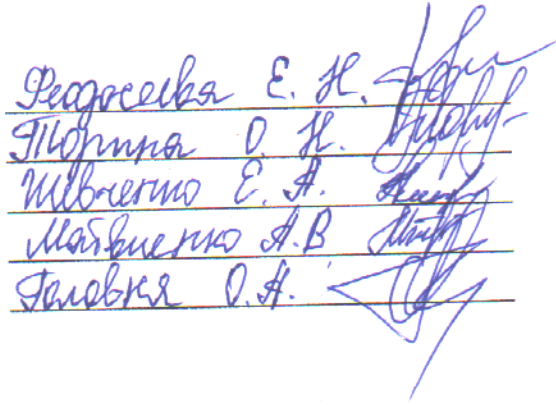 Федосеевва Е. Н.
Ториня О. Н.
Шевченко Е. А.
Матвиенко А.В
Головня О.А.